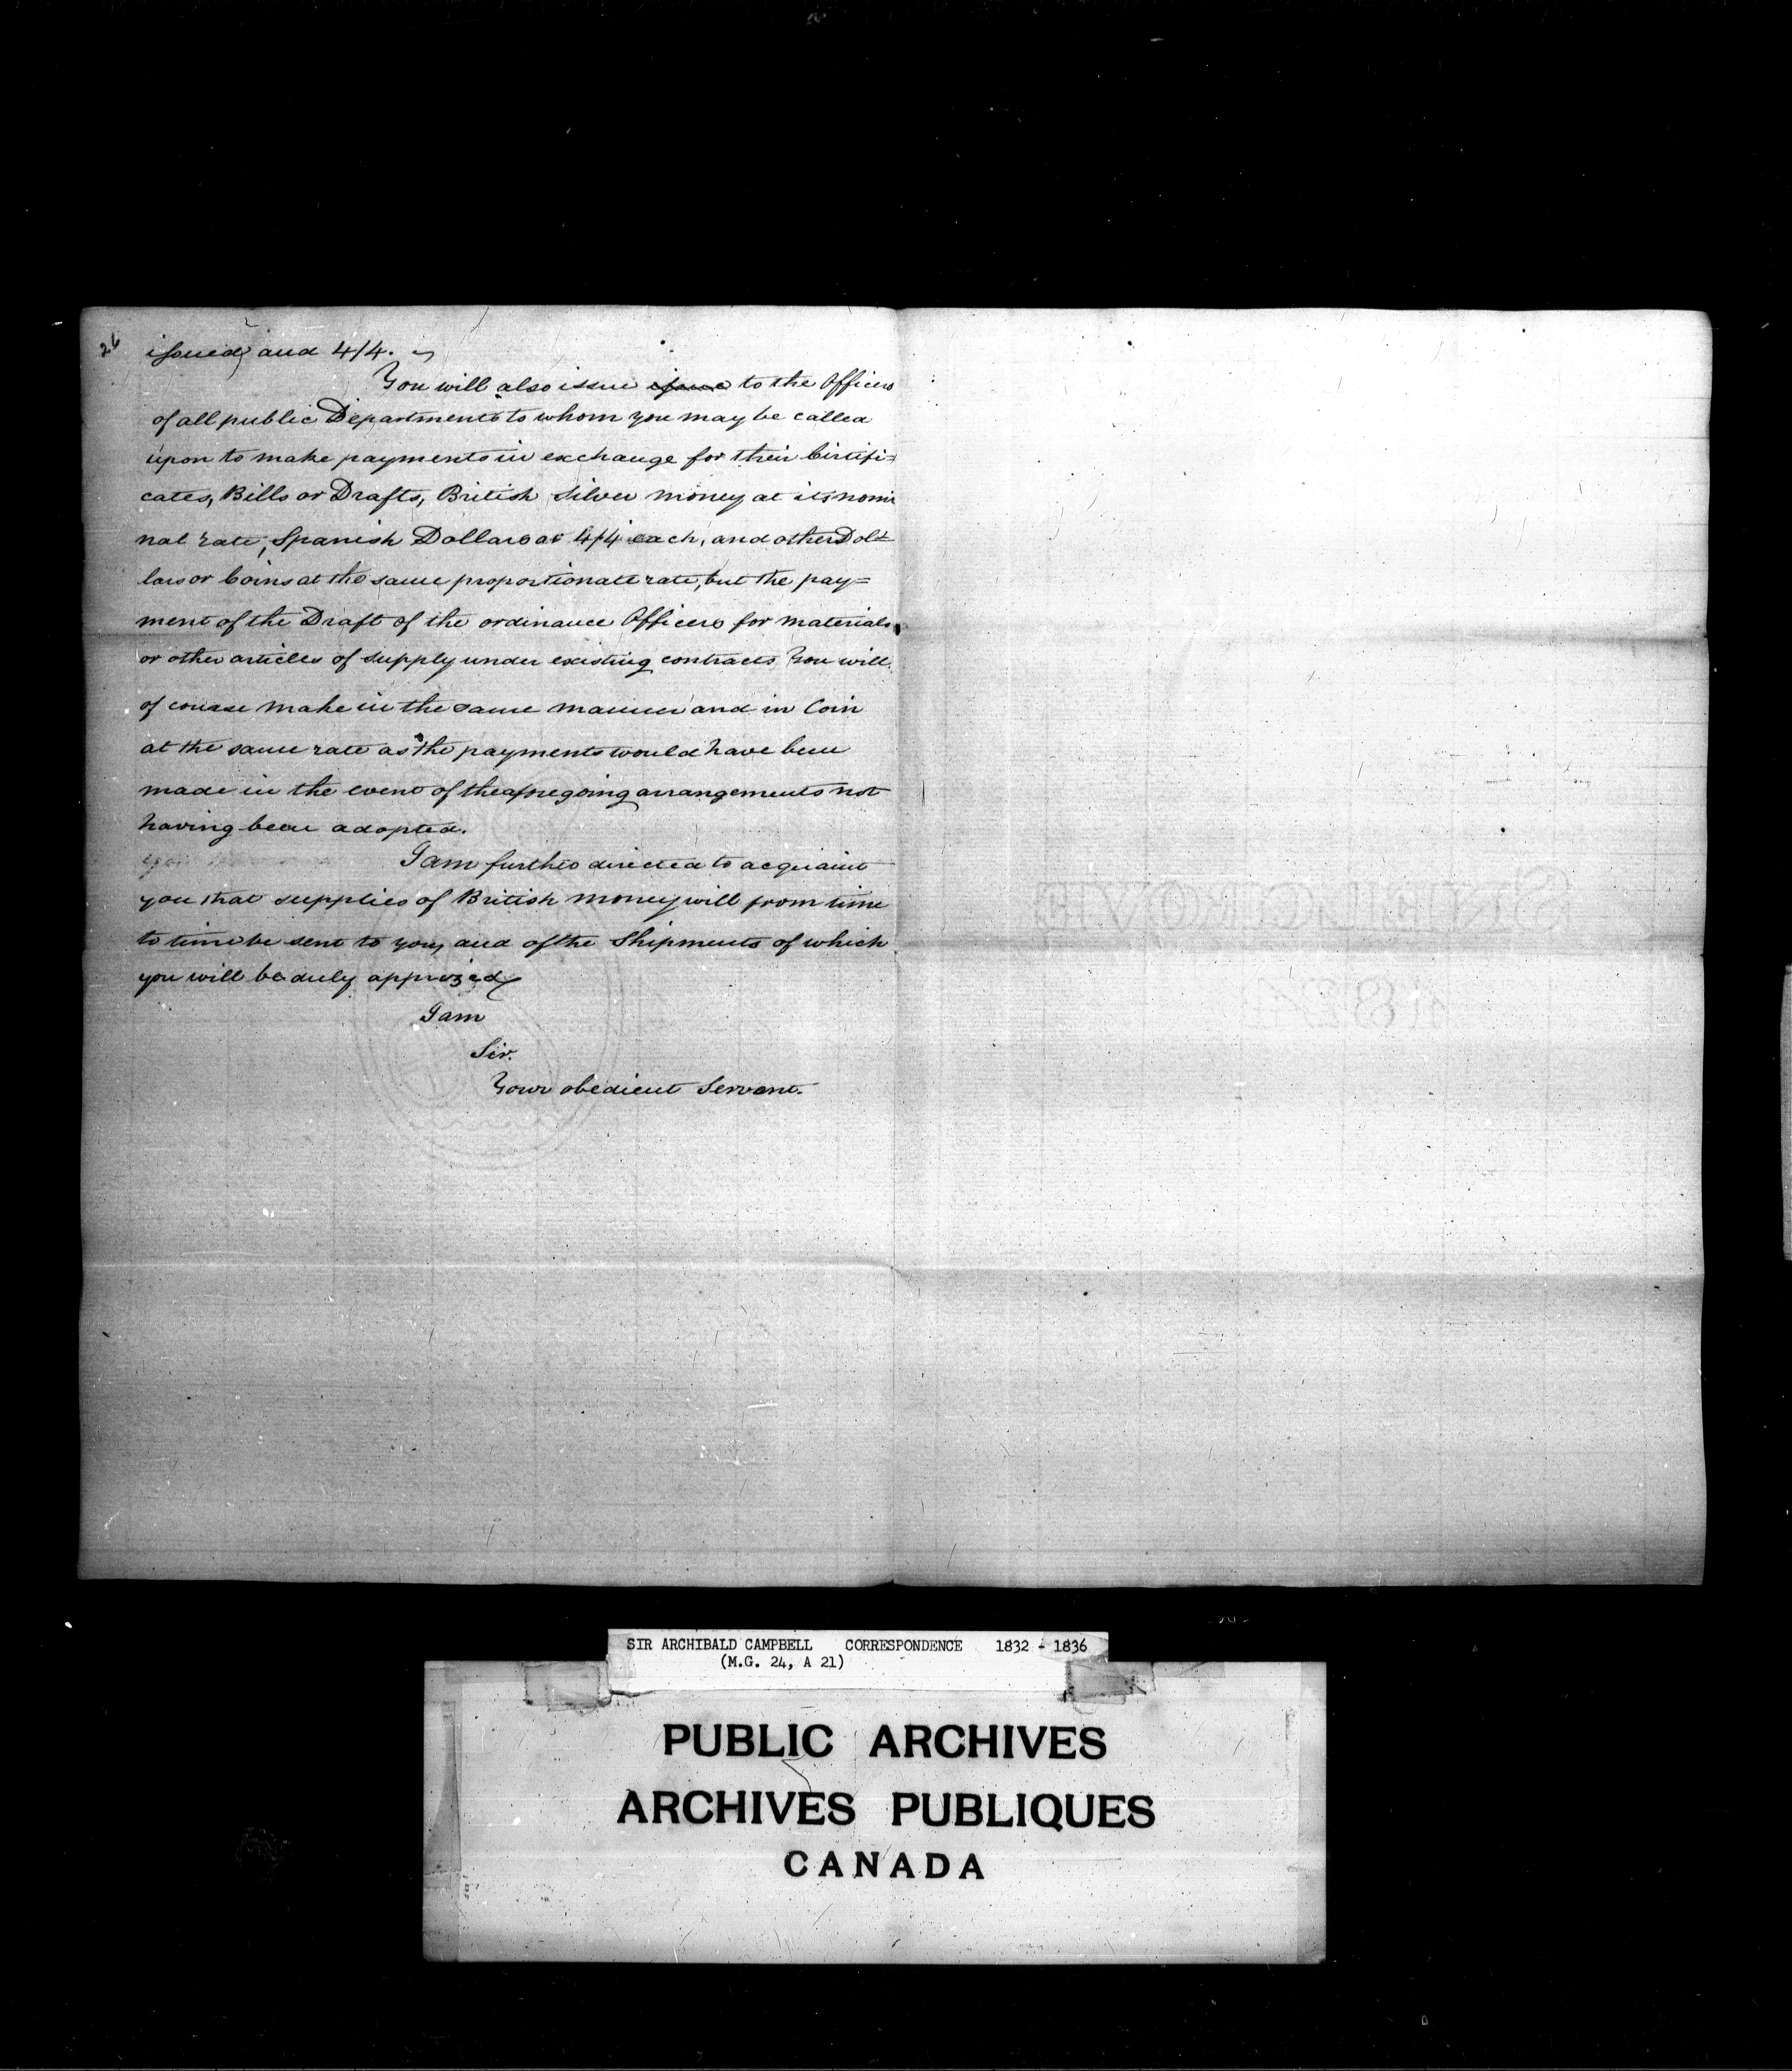 26
issued, and 4/4.
You will also issue issue to the Officers
of all public Departments to whom you may be called
upon to make payments in exchange for their Certifi=
cates, Bills or Drafts, British Silver money at its nomi
nal rate, Spanish Dollars at 4/4 each, and other Dol=
lars or Coins at the same proportionate rate, but the pay=
ment of the Draft of the ordinance Officers for materials
or other articles of supply under existing contracts You will
of course make in the same manner and in Coin
at the same rate as the payments would have been
made in the event of the aforegoing arrangements not
having been adopted.
I am further directed to acquaint
you that supplies of British money will from time
to time be sent to you, and of the Shipments of which
you will be duly apprized
I am
Sir.
Your obedient Servant.
SIR ARCHIBALD CAMPBELL CORRESPONDENCE 1832 - 1836
(M.G. 24, A 21)
PUBLIC ARCHIVES
ARCHIVES PUBLIQUES
CANADA